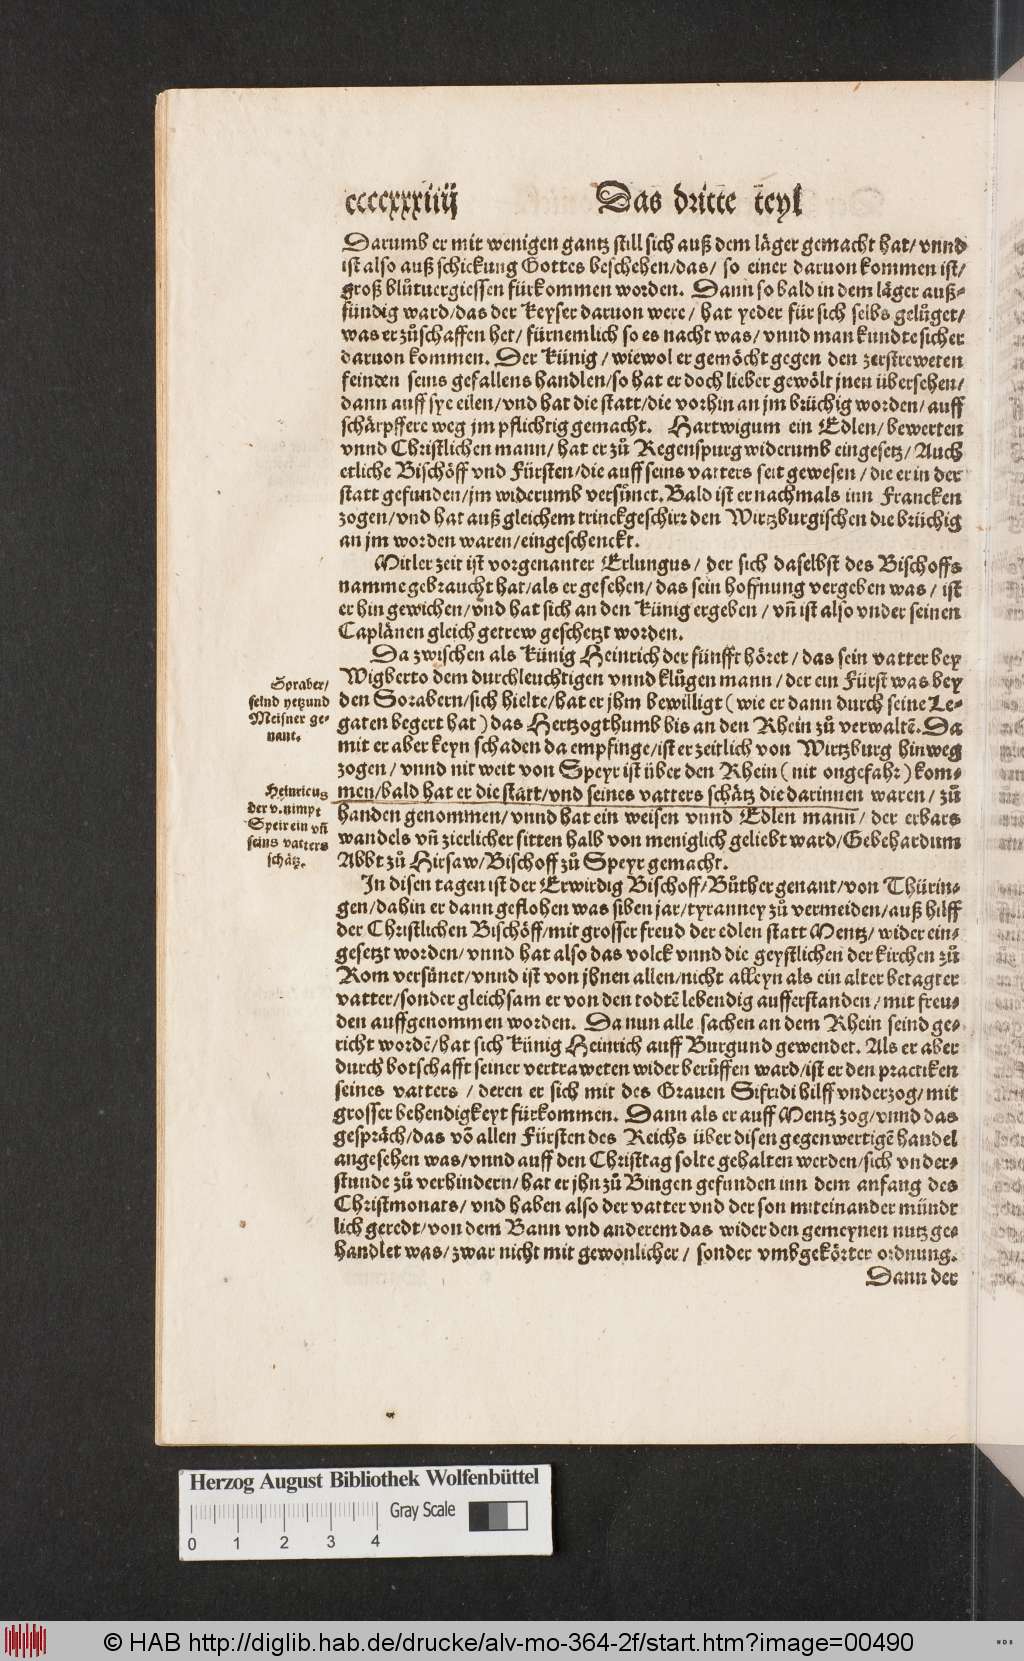 ccccxxxiiij Das dritte teyl
Darumb er mit wenigen gantz still sich auß dem låger gemacht hat/ vnnd
ist also auß schickung Gottes beschehen/das/ so einer daruon kommen ist/
groß blůtuergiessen fürkommen worden. Dann so bald in dem låger auß⸗
fündig ward/das der Keyser daruon were/ hat yeder für sich selbs gelůget/
was er zůschaffen het/ fürnemlich so es nacht was/ vnnd man kundte sicher
daruon kommen. Der Künig/ wiewol er gemöcht gegen den zerstreweten
feinden seins gefallens handlen/so hat er doch lieber gewölt jnen übersehen/
dann auff sye eilen/vnd hat die statt/die vorhin an jm brüchig worden/ auff
schårpffere weg jm pflichtig gemacht. Hartwigum ein Edlen/ bewerten
vnnd Christlichen mann/ hat er zů Regenspurg widerumb eingesetz/ Auch
etliche Bischöff vnd Fürsten/die auff seins vatters seit gewesen/ die er in der
statt gefunden/jm widerumb versůnet. Bald ist er nachmals inn Francken
zogen/vnd hat auß gleichem trinckgeschirr den Wirtzburgischen die brüchig
an jm worden waren/eingeschenckt.
Mitler zeit ist vorgenanter Erlungus/ der sich daselbst des Bischoffs
namme gebraucht hat/als er gesehen/ das sein hoffnung vergeben was/ ist
er hin gewichen/vnd hat sich an den Künig ergeben/ vñ ist also vnder seinen
Caplånen gleich getrew geschetzt worden.
Da zwischen als Künig Heinrich der fünfft höret/ das sein vatter bey
Wigberto dem durchleuchtigen vnnd klůgen mann/ der ein Fürst was bey
den Sorabern/sich hielte/hat er jhm bewilligt (wie er dann durch seine Le⸗
gaten begert hat) das Hertzogthumb bis an den Rhein zů verwaltē. Da
mit er aber keyn schaden da empfinge/ist er zeitlich von Wirtzburg hinweg
zogen/ vnnd nit weit von Speyr ist über den Rhein (nit ongefahr) kom⸗
men/bald hat er die statt/vnd seines vatters schåtz die darinnen waren/ zů
handen genommen/ vnnd hat ein weisen vnnd Edlen mann/ der erbars
wandels vñ zierlicher sitten halb von meniglich geliebt ward/Gebehardum
Abbt zů Hirsaw/Bischoff zů Speyr gemacht.
Soraber/
seind yetzund
Meisner ge⸗
nant.
Heinricus
der v. nimpt
Speir ein vñ
seins vatters
schåtz.
In disen tagen ist der Erwirdig Bischoff/Bůther genant/von Thürin⸗
gen/dahin er dann geflohen was siben jar/tyranney zů vermeiden/auß hilff
der Christlichen Bischöff/mit grosser freud der edlen statt Mentz/ wider ein⸗
gesetzt worden/ vnnd hat also das volck vnnd die geystlichen der kirchen zů
Rom versůnet/vnnd ist von jhnen allen/nicht alleyn als ein alter betagter
vatter/sonder gleichsam er von den todtē lebendig aufferstanden/ mit freu⸗
den auffgenommen worden. Da nun alle sachen an dem Rhein seind ge⸗
richt wordē/hat sich Künig Heinrich auff Burgund gewendet. Als er aber
durch botschafft seiner vertraweten wider berůffen ward/ist er den practiken
seines vatters/ deren er sich mit des Grauen Sifridi hilff vnderzog/mit
grosser behendigkeyt fürkommen. Dann als er auff Mentz zog/vnnd das
gespråch/das võ allen Fürsten des Reichs über disen gegenwertigē handel
angesehen was/vnnd auff den Christtag solte gehalten werden/sich vnder⸗
stunde zů verhindern/hat er jhn zů Bingen gefunden inn dem anfang des
Christmonats/ vnd haben also der vatter vnd der son miteinander mündt
lich geredt/von dem Bann vnd anderem das wider den gemeynen nutz ge⸗
handlet was/zwar nicht mit gewonlicher/ sonder vmbgekörter ordnung.
Dann der
Herzog August Bibliothek Wolfenbüttel
Gray Scale
0 1 2 3 4
© HAB http://diglib.hab.de/drucke/alv-mo-364-2f/start.htm?image=00490